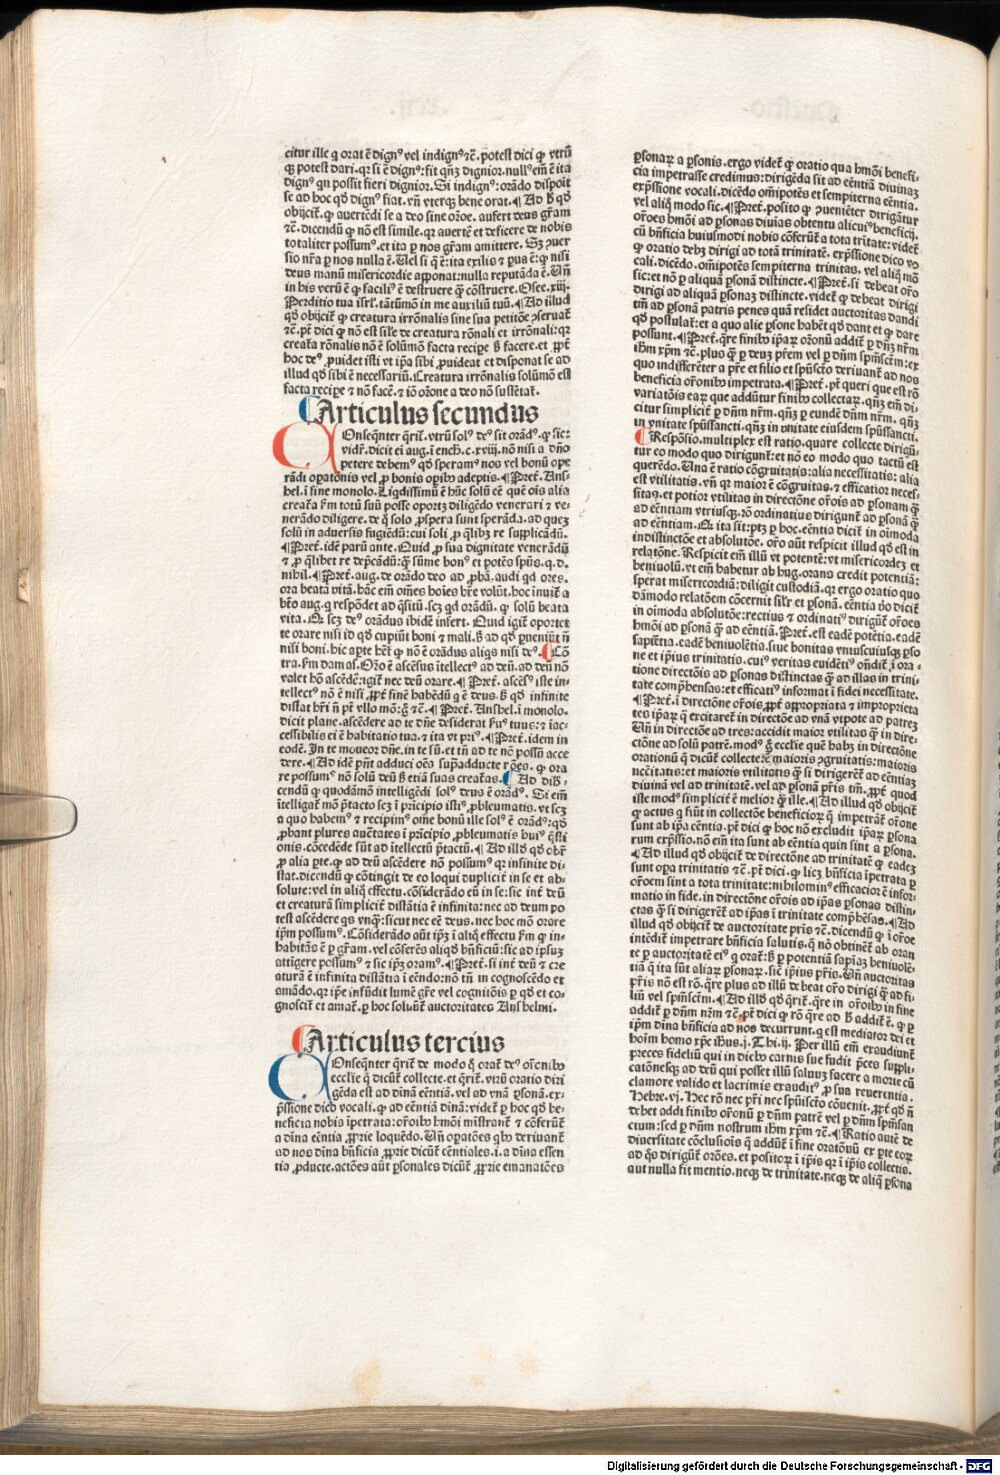 citur ille q̄ orat ē dignꝰ vel indignꝰ ⁊c̄. potest dici ꝙ vtrūq̄
potest dari. qr si ē dignꝰ: fit qn̄ꝫ dignior. nullꝰ em̄ ē ita
dignꝰ qn possit fieri dignior. Si indignꝰ: orādo dispoīt
se ad hoc qd̄ dignꝰ fiat. vn̄ vterqꝫ bene orat. ¶ Ad ẜ qd̄
obijcit̄. ꝙ auertēdi se a deo sine or̄oe. aufert deus gr̄am
⁊c̄. dicendū ꝙ nō est simile. qr auertē et deficere de nobis
totaliter possumꝰ. et ita ꝑ nos gr̄am amittere. Sꝫ ꝯuer
sio nr̄a ꝑ nos nulla ē. Uel si q̄ ē: ita exilis ⁊ ꝑua ē: ꝙ nisi
deus manū misericordie apponat: nulla reputāda ē. Un̄
in his verū ē ꝙ faciliꝰ ē destruere q̄ꝫ cōstruere. Osee. xiij.
Perditio tua isrl̄. tātūmō in me auxiliū tuū. ¶ Ad illud
qd̄ obijcit̄ ꝙ creatura irrōnalis sine sua petitōe ꝯseruat̄
⁊c̄. pt̄ dici ꝙ nō est sil̄e de creatura rōnali et irrōnali: qr
creat̄a rōnalis nō ē solūmō facta recipe ẜ facere. et ꝓpt̄
hoc deꝰ ꝓuidet isti vt ip̄a sibi ꝓuideat et disponat se ad
illud qd̄ sibi ē necessariū. Creatura irrōnalis solūmō est
facta recipe ⁊ nō facē. ⁊ iō or̄one a deo nō sustētat̄.
Articulus secundus
COnseqn̄ter q̄rit̄. vtrū solꝰ deꝰ sit orādꝰ. ꝙ sic:
vidr̄. dicit ei aug. ī ench. c. xviij. nō nisi a dn̄o
petere debemꝰ qd̄ speramꝰ nos vel bonū ope
rādi opatōnis vel ꝓ bonis opibꝰ adeptis. ¶ Pret̄. Ans-
hel. ī fine monolo. Liqdissimū ē hūc solū cē quē oīs alia
creat̄a ẜm totū suū posse oportꝫ diligēdo venerari ⁊ ve-
nerādo diligere. de q̄ solo ꝓspera sunt sperāda. ad queꝫ
solū in aduersis fugiēdū: cui soli ꝓ qlibꝫ re supplicādū.
¶ Pret̄. idē parū ante. Quid ꝓ sua dignitate venerādū
⁊ ꝓ qlibet re dep̄cādū: q̄ꝫ sūme bonꝰ et potēs spūs. q. d.
nihil. ¶ Pret̄. aug. de orādo deo ad ꝓbā. audi qd ores.
ora beatā vitā. hāc em̄ om̄es hoīes hr̄e volūt. hoc inuīt a
br̄to aug. q respōdet ad q̄situ. scꝫ qd orādū. ꝙ solū beata
vita. Qr scꝫ deꝰ orādus ibidē insert. Quid igit̄ oportet
te orare nisi id qd̄ cupiūt boni ⁊ mali. ẜ ad qd̄ ꝑueniūt n̄
nisi boni. hic aꝑte hēt̄ ꝙ nō ē orādus aliqs nisi deꝰ. ¶ Cō
tra. ẜm damas. Or̄o ē ascēsus ītellectꝰ ad deū. ad deū nō
valet hō ascēdē: igit̄ nec deū orare. ¶ Pret̄. ascēsꝰ iste in-
tellectꝰ nō ē nisi ꝓpt̄ finē habēdū q ē deus. ẜ qd̄ infinite
distat hr̄i n̄ pt̄ vllo mō: ḡ ⁊c̄. ¶ Pret̄. Anshel. ī monolo.
dicit plane. ascēdere ad te dn̄e desiderat ẜuꝰ tuus: ⁊ iac-
cessibilis ei ē habitatio tua. ⁊ ita vt priꝰ. ¶ Pret̄. idem in
eodē. In te moueor dn̄e. in te sū. et tn̄ ad te nō possū acce
dere. ¶ Ad idē pn̄t adduci oēs supadducte rōes. ꝙ ora
re possumꝰ nō solū deū ẜ etiā suas creat̄as. ¶ Ad diẜ-
cendū ꝙ quodāmō intelligēdi solꝰ deus ē orādꝰ. Si em̄
ītelligat̄ mō p̄tacto scꝫ ī prīcipio istiꝰ ꝓbleumatis. vt scꝫ
a quo habemꝰ ⁊ recipimꝰ om̄e bonū ille solꝰ ē orādꝰ: qd̄
ꝓbant plures auc̄tates ī prīcipio ꝓbleumatis huiꝰ q̄sti
onis. cōcedēde sūt ad ītellectū p̄tactū. ¶ Ad illd̄ qd̄ obr̄
ꝓ alia ꝑte. ꝙ ad deū ascēdere nō possumꝰ qr infinite di-
stat. dicendū ꝙ cōtingit de eo loqui duplicit̄ in se et ab-
solute: vel in aliq̄ effectu. cōsiderādo eū in se: sic int̄ deū
et creaturā simplicit̄ distātia ē infinita: nec ad deum po
test ascēdere qs vnq̄ꝫ: sicut nec eē deus. nec hoc mō orare
ip̄m possumꝰ. Cōsiderādo aūt ip̄ꝫ ī aliq̄ effectu ẜm ꝙ in-
habitās ē ꝑ gr̄am. vel cōserēs aliqd̄ bn̄ficiū: sic ad ip̄suꝫ
attīgere possumꝰ ⁊ sic ip̄ꝫ oramꝰ. ¶ Pret̄. si int̄ deū ⁊ cre
aturā ē infinita distātia ī eēndo: nō tn̄ in cognoscēdo et
amādo. qr ip̄e infūdit lumē gr̄e vel cognitiōis ꝑ qd̄ et co-
gnoscit̄ et amat̄. ꝑ hoc soluūt̄ auctoritates Anshelmi.
Articulus tercius
COnseqn̄ter q̄rit̄ de modo q̄ orat̄ deꝰ or̄onibꝰ
ecclīe q̄ dicūt̄ collecte. et q̄rit̄. vtrū oratio diri
gēda est ad dīnā eēntiā. vel ad vnā ꝑsonā. ex-
p̄ssione dicō vocali. ꝙ ad eēntiā dīnā: videt̄ ꝑ hoc qd̄ be-
neficia nobis īpetrata: or̄oībꝰ hm̄ōi mīstrant̄ ⁊ cōferūt̄
a dīna eēntia ꝓprie loquēdo. Un̄ opatōes qbꝰ deriuant̄
ad nos dīna bn̄ficia ꝓprie dicūt̄ cēntiales. i. a dīna essen
tia ꝓducte. actōes aūt ꝑsonales dicūt̄ ꝓprie emanatōes
ꝑsonaꝝ a ꝑsonis. ergo videt̄ ꝙ oratio qua hm̄ōi benefi-
cia impetrasse credimus: dirigēda sit ad eēntiā diuinaꝫ
exp̄ssione vocali. dicēdo om̄ipotēs et sempiterna eēntia.
vel aliq̄ modo sic. ¶ Pret̄. posito ꝙ ꝯueniēter dirigātur
or̄oes hm̄ōi ad ꝑsonas diuīas obtentu alicuiꝰ beneficij.
cū bn̄ficia huiusmodi nobis cōferūt̄ a tota trītate: videt̄
ꝙ oratio debꝫ dirigi ad totā trinitatē. exp̄ssione dico vo
cali. dicēdo. om̄ipotēs sempiterna trinitas. vel aliq̄ mō
sic: et nō ꝑ aliquā ꝑsonā distincte. ¶ Pret̄. si debeat or̄o
dirigi ad aliquā ꝑsonaꝫ distincte. videt̄ ꝙ debeat dirigi
tm̄ ad ꝑsonā patris penes quā residet auctoritas dandi
qd̄ postulat̄: et a quo alie ꝑsone habēt qd̄ dant et ꝙ dare
possunt. ¶ Pret̄. q̄re finibꝰ ip̄aꝝ or̄onū addit̄ ꝑ dn̄m nr̄m
ihm xp̄m ⁊c̄. plus q̄ꝫ ꝑ deuꝫ pr̄em vel ꝑ dn̄m spm̄sct̄m: ex
quo indifferēter a pr̄e et filio et spūsctō deriuant̄ ad nos
beneficia or̄onibꝰ impetrata. ¶ Pret̄. pt̄ queri que est rō
variatōis eaꝝ que addūtur finibꝰ collectaꝝ. qn̄ꝫ em̄ di-
citur simplicit̄ ꝑ dn̄m nr̄m. qn̄ꝫ ꝑ eundē dn̄m nr̄m. qn̄ꝫ
in vnitate spūssancti. qn̄ꝫ in vnitate eiusdem spūssancti.
¶ Respōsio. multiplex est ratio. quare collecte dirigū-
tur eo modo quo dirigunt̄: et nō eo modo quo tactū est
querēdo. Una ē ratio cōgruitatis: alia necessitatis: alia
est vtilitatis. vn̄ qr maior ē cōgruitas. ⁊ efficatior neces-
sitas. et potior vtilitas in directōne or̄ois ad ꝑsonam q̄ꝫ
ad eēntiam vtriusqꝫ. rō ordinatius dirigunt̄ ad ꝑsonā q̄ꝫ
ad eēntiam. Qr ita sit: ptꝫ ꝑ hoc. eēntia dicit̄ in oīmoda
indistinctōe et absolutōe. or̄o aūt respicit illud qd̄ est in
relatōne. Respicit em̄ illū vt potentē: vt misericordeꝫ et
beniuolū. vt em̄ habetur ab hug. orans credit potentiā:
sperat misericordiā: diligit custodiā. qr ergo oratio quo
dāmodo relatōem cōcernit sil̄r et ꝑsonā. eēntia vo dicit̄
in oīmoda absolutōe: rectius ⁊ ordinatiꝰ dirigūt̄ or̄oes
hm̄ōi ad ꝑsonā q̄ꝫ ad eēntiā. Pret̄. est eadē potētia. eadē
sapiētia. eadē beniuolētia. siue bonitas vniuscuiusqꝫ ꝑso
ne et ip̄ius trinitatis. cuiꝰ veritas euidētiꝰ on̄dit̄ ī ora-
tione directōis ad ꝑsonas distinctas q̄ꝫ ad illas in trini-
tate comp̄hensas: et efficatiꝰ informat̄ ī fidei necessitate.
¶ Pret̄. ī directōne or̄ois ꝓpt̄ appropriata ⁊ improprieta
tes ip̄aꝝ q excitaret̄ in directōe ad vnā vtpote ad patreꝫ
Un̄ in directōe ad tres: accidit maior vtilitas q̄ꝫ in dire-
ctōne ad solū patrē. modꝰ ḡ ecclīe quē habꝫ in directōne
orationū q dicūt̄ collecte: ē maioris ꝯgruitatis: maioris
necitatis: et maioris vtilitatis q̄ꝫ si dirigerēt̄ ad eēntiaꝫ
diuinā vel ad trinitatē. vel ad ꝑsonā pr̄is tm̄. ꝓpt̄ quod
iste modꝰ simplicit̄ ē meliorꝫ q̄ꝫ ille. ¶ Ad illud qd̄ obijcit̄
ꝙ actus q fiūt in collectōe beneficioꝝ q̄ impetrāt̄ or̄one
sunt ab ip̄a eēntia. pt̄ dici ꝙ hoc nō excludit ip̄aꝝ ꝑsona
rum exp̄ssio. nō em̄ ita sunt ab eēntia quin sint a ꝑsona.
¶ Ad illud qd̄ obijcit̄ de directōne ad trinitatē ꝙ eadeꝫ
sunt oꝑa trinitatis ⁊c̄. pt̄ dici. ꝙ licꝫ bn̄ficia īpetrata ꝑ
or̄oem sint a tota trinitate: nihilominꝰ efficacior ē infor-
matio in fide. in directōne or̄ois ad ip̄as ꝑsonas distin-
ctas q̄ꝫ si dirigerēt̄ ad ip̄as ī trinitate comp̄hēsas. ¶ Ad
illud qd̄ obijcit̄ de auctoritate pr̄is ⁊c̄. dicendū ꝙ ī or̄oe
intēdit̄ impetrare bn̄ficia salutis. q̄ nō obtinēt̄ ab oran
te ꝑ auctoritatē eiꝰ q orat̄: ẜ ꝑ potentiā sapīaꝫ beniuolē-
tiā q̄ ita sūt aliaꝝ ꝑsonaꝝ. sic ip̄ius pr̄is. Un̄ auctoritas
pr̄is nō est rō. q̄re plus ad illū debeat or̄o dirigi q̄ꝫ ad fi-
liū vel spm̄sct̄m. ¶ Ad illd̄ qd̄ q̄rit̄. q̄re in or̄oībꝰ in fine
addit̄ ꝑ dn̄m nr̄m ⁊c̄. pt̄ dici ꝙ rō q̄re ad ẜ addit̄ ē. ꝙ ꝑ
ip̄m dīna bn̄ficia ad nos decurrunt. q est mediator dei et
hoīm homo xp̄c ihus. j. Thi. ij. Per illū em̄ exaudiunt̄
preces fideliū qui in diebꝰ carnis sue fudit p̄ces suppli-
catōnesqꝫ ad deū qui posset illū saluuꝫ facere a morte cū
clamore valido et lacrimis exauditꝰ ꝓ sua reuerentia.
Hebre. vj. Hec rō nec pr̄i nec spūisctō cōuenit. ꝓpt̄ qd̄ n̄
debet addi finibꝰ or̄onū ꝑ dn̄m patrē vel ꝑ dn̄m spm̄san
ctum: sed ꝑ dn̄m nostrum ihm xp̄m ⁊c̄. ¶ Ratio autē de
diuersitate cōclusiōis q̄ addūt̄ ī fine oratōnū ex ꝑte eoꝝ
ad q̄s dirigūt̄ orōes. et positoꝝ ī ip̄is qr ī ip̄is collectis.
aut nulla fit mentio. neqꝫ de trinitate. neqꝫ de aliq̄ ꝑsona
Digitalisierung gefördert durch die Deutsche Forschungsgemeinschaft - DFG